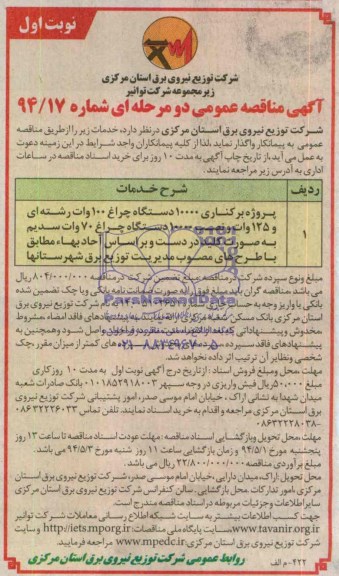 نوبت اول
شرکت توزیع نیروی برق استان مرکزی
زیرمجموعه شرکت توانیر
آگهی مناقصه عمومی دو مرحله ای شماره ۹۴/۱۷
شرکت توزیع نیروی برق استان مرکزی درنظر دارد، خدمات زیر را ازطریق مناقصه
عمومی به پیمانکار واگذار نماید، لذا از کلیه پیمانکاران واجد شرایط در این زمینه دعوت
به عمل می آید، از تاریخ چاپ آگهی به مدت ۱۰ روز برای خرید اسناد مناقصه در ساعات
اداری به آدرس زیر مراجعه نمایند.
ردیف شرح خدمات
۱ پروژه برکناری ۱۰۰۰۰ دستگاه چراغ ۱۰۰ وات رشته ای
و ۱۲۵ وات ۱۰۰۰۰ دستگاه چراغ ۷۰ وات سدیم
به صورت کلید در دست و براساس آحاد بهاء مطابق
با طرح های مصوب مدیریت توزیع برق شهرستانها
مبلغ ونوع سپرده شرکت در مناقصه: مبلغ تضمین شرکت در مناقصه ۸۰۴/۰۰۰/۰۰۰ ریال می
باشد. مناقصه گران باید مبلغ فوق را به صورت ضمانت نامه بانکی ویا چک تضمین شده
بانکی یا واریز وجه به حساب نام شرکت توزیع نیروی برق
استان مرکزی بانک مسکن به پیشنهادهای فاقد امضاء، مشروط
مخدوش وپیشنهاداتی که بعد از واصل شود وهمچنین به
پیشنهادهای فاقد سپرده های کمتر از میزان مقرر، چک
شخصی ونظایر آن ترتیب اثر داده نخواهد شد.
ParsNamadData
۰۲۱-۸۸۳۴۹۶۷۰-۵
مهلت محل ومبلغ فروش اسناد: از تاریخ درج آگهی نوبت اول به مدت ۱۰ روز کاری
مبلغ ۵۰۰/۰۰۰ ریال فیش واریزی در وجه سپهر ۰۱۰۱۸۵۲۹۱۸۰۰۳ بانک صادرات شعبه
میدان شهدا به نشانی اراک، خیابان امام موسی صدر، امور پشتیبانی شرکت توزیع نیروی
برق استان مرکزی مراجعه واقدام به خرید اسناد نمایند. تلفن تماس ۰۸۶۳۲۲۲۶۰۳۳
-۰۸۶۳۲۲۲۸۰۳۸
مهلت محل تحویل وبازگشایی اسناد مناقصه: مهلت عودت اسناد مناقصه تا ساعت ۱۳ روز
پنجشنبه مورخ ۹۴/۵/۱ و زمان بازگشایی ساعت ۱۱ روز شنبه مورخ ۹۴/۵/۳ می باشد.
مبلغ برآوردی مناقصه ۲۲/۸۰۰/۰۰۰/۰۰۰ ریال می باشد.
محل تحویل: اراک، میدان دارایی، خیابان امام موسی صدر، شرکت توزیع نیروی برق استان
مرکزی، امور تدارکات. محل بازگشایی، سالن کنفرانس شرکت توزیع نیروی برق استان مرکزی.
سایر اطلاعات وجزئیات مربوطه در اسناد مناقصه مندرج است.
جهت کسب اطلاعات بیشتر به سایت شبکه اطلاع رسانی معاملات شرکت توانیر
www.tavanir.org.ir سایت پایگاه ملی مناقصات http://iets.mporg.ir و سایت
شرکت توزیع نیروی برق استان مرکزی www.mpedc.ir مراجعه فرمایید.
۴۲۲-م الف
روابط عمومی شرکت توزیع نیروی برق استان مرکزی